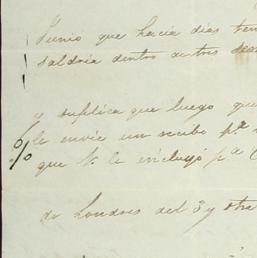 Junio que hacia dias ten
saldria dentro de tres
y suplica que luego que
le envie un recibo pª
que N. le incluyó pª
de Londres del 3 y otra